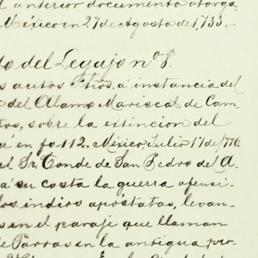 l anterior documento otorga-
México en 27 de Agosto de 1733.
to del Legajo nº 8.
s autos fhos. á instancia del
del Alamo Mariscal de Cam-
tos, sobre la extincion del
á en fo 112. México, Julio 17 de 1776.
el Sr. Conde de San Pedro del A.
á su costa la guerra ofensi-
los indios apóstatas, levan-
s en el paraje que llaman
de Parras en la antigua pro-